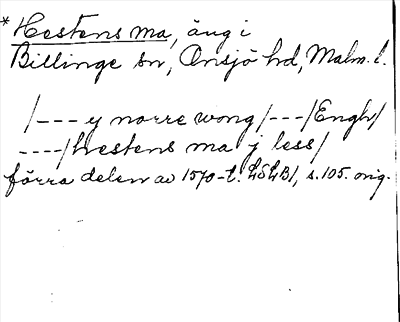 *Hestens ma, äng i
Billinge sn, Onsjö hd, Malm. l.
/--- y norre wong /---/Engh/
----/hestens ma j less/
förra delen av 1570-t. LSLB/, s. 105. orig.